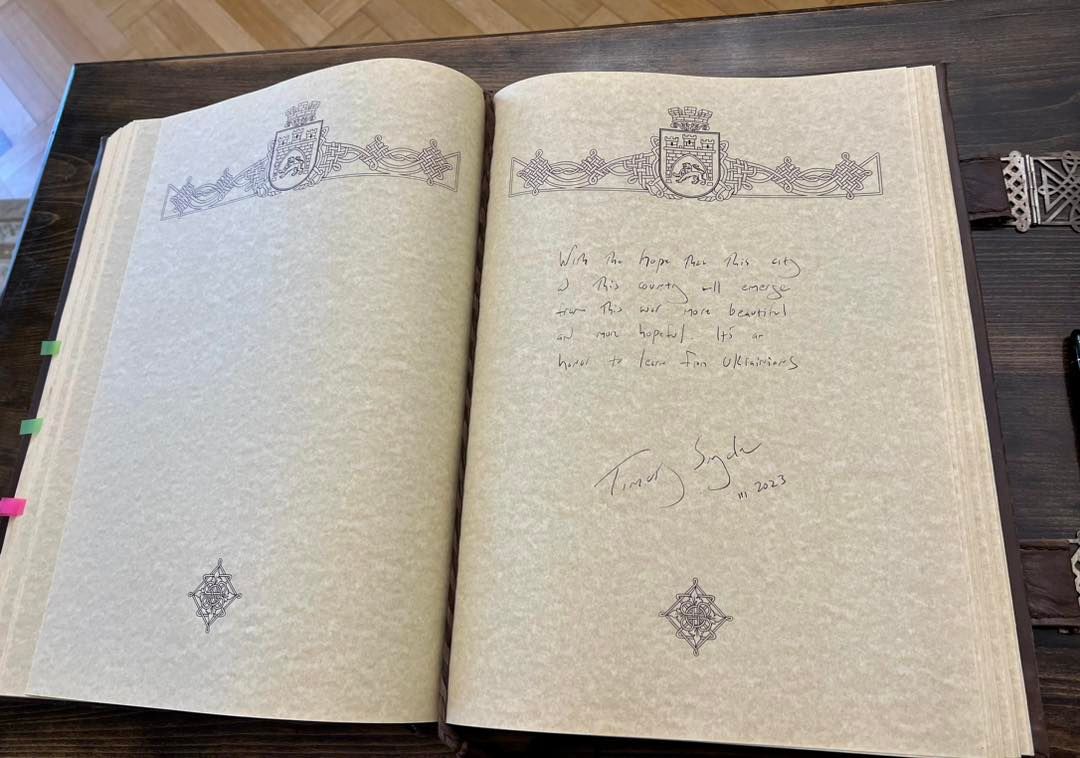 With the hope that this city
& this country will emerge
from this war more beautiful
and more hopeful. It's an
honor to learn from Ukrainians
Timothy Snyder
III 2023